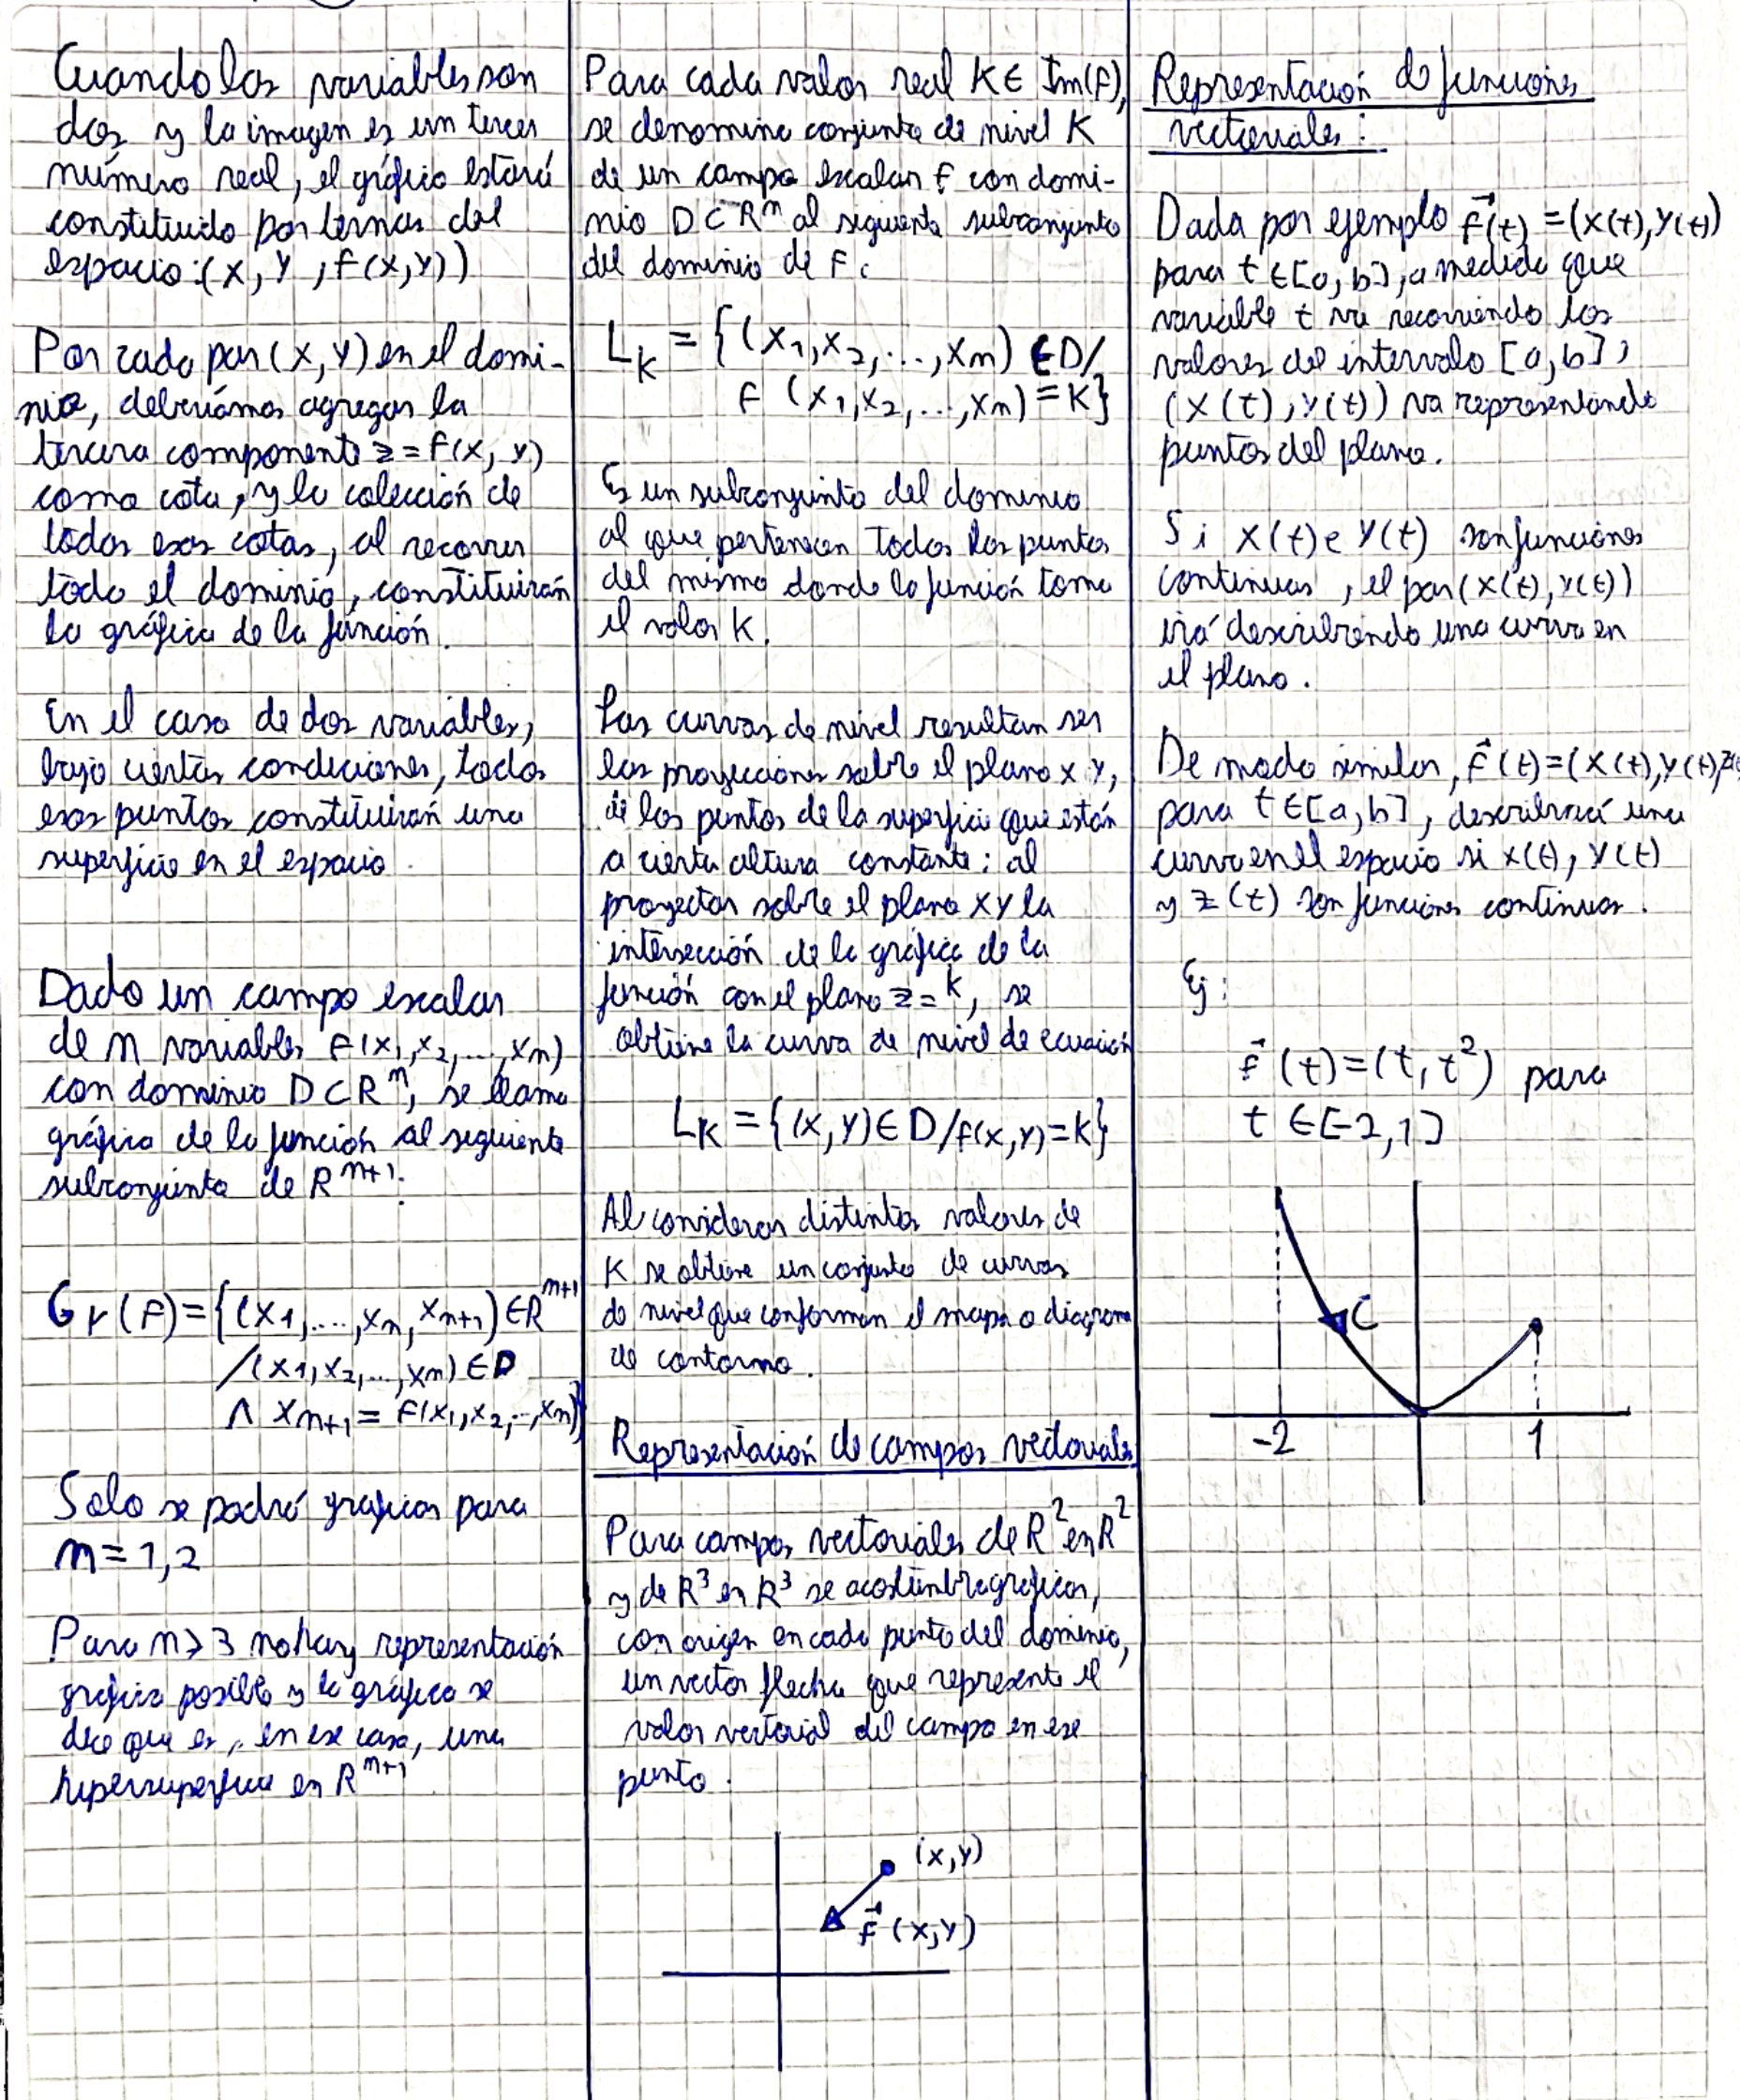 Cuando las variables son
dos y la imagen es un tercer
número real, el gráfico estará
constituido por ternas del
espacio: (x, y, f(x,y))
Por cada par (x, y) en el domi-
nio, deberíamos agregar la
tercera componente z = f(x, y)
como cota, y la colección de
todas esas cotas, al recorrer
todo el dominio, constituirán
la gráfica de la función.
En el caso de dos variables,
bajo ciertas condiciones, todos
esos puntos constituirán una
superficie en el espacio.
Dado un campo escalar
de n variables f(x1, x2, ..., xn)
con dominio D⊂Rⁿ, se llama
gráfica de la función al siguiente
subconjunto de Rⁿ⁺¹:
Gr(f) = {(x1, ..., xn, xn+1) ∈ Rⁿ⁺¹
/(x1, x2, ..., xn) ∈ D
∧ xn+1 = f(x1, x2, .., xn)}
Solo se podrá graficar para
n = 1, 2
Para n ≥ 3 no hay representación
gráfica posible y la gráfica se
dice que es, en ese caso, una
hipersuperficie en Rⁿ⁺¹
Para cada valor real K ∈ Im(f),
se denomina conjunto de nivel K
de un campo escalar f con domi-
nio D⊂Rⁿ al siguiente subconjunto
del dominio de f:
LK = {(x1, x2, ..., xn) ∈ D/
f (x1, x2, ..., xn) = K}
Es un subconjunto del dominio
al que pertenecen todos los puntos
del mismo donde la función toma
el valor K.
Las curvas de nivel resultan ser
las proyecciones sobre el plano xy,
de los puntos de la superficie que están
a cierta altura constante: al
proyectar sobre el plano xy la
intersección de la gráfica de la
función con el plano z = k, se
obtiene la curva de nivel de ecuación
LK = {(x, y) ∈ D / f(x, y) = k}
Al considerar distintos valores de
K se obtiene un conjunto de curvas
de nivel que conforman el mapa o diagrama
de contorno.
Representación de campos vectoriales
Para campos vectoriales de R² en R²
y de R³ en R³ se acostumbra graficar,
con origen en cada punto del dominio,
un vector flecha que represente el
valor vectorial del campo en ese
punto.
(x, y)
f⃗ (x, y)
Representación de funciones
vectoriales:
Dada por ejemplo f⃗(t) = (x(t), y(t))
para t ∈ [a, b], a medida que
variable t va recorriendo los
valores del intervalo [a, b],
(x(t), y(t)) va representando
puntos del plano.
Si x(t) e y(t) son funciones
continuas, el par (x(t), y(t))
irá describiendo una curva en
el plano.
De modo similar, f⃗(t) = (x(t), y(t), z(t
para t ∈ [a, b], describirá una
curva en el espacio si x(t), y(t)
y z(t) son funciones continuas.
Ej:
f⃗(t) = (t, t²) para
t ∈ [-2, 1]
C
-2
1